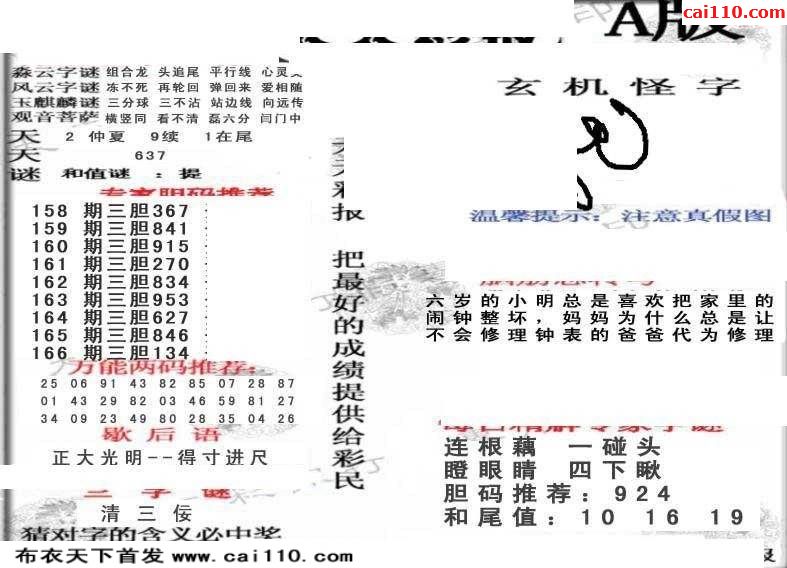 cai110.com
A版
玄机怪字
森云字谜 组合龙 头追尾 平行线
风云字谜 冻不死 再轮回 弹回来 爱相随
玉麒麟谜 三分球 三不沾 站边线 向远传
观音菩萨 横竖同 看不清 磊六分 闫门中
天 2 仲夏 9续 1在尾
天 637
谜 和值谜 : 提
专家胆码推荐
158 期三胆367
159 期三胆841
160 期三胆915
161 期三胆270
162 期三胆834
163 期三胆953
164 期三胆627
165 期三胆846
166 期三胆134
万能两码推荐:
25 06 91 43 82 85 07 28 87
01 43 29 82 03 46 59 81 27
34 09 23 49 80 28 35 04 26
歇后语
正大光明--得寸进尺
三字谜
清三佞
猜对字的含义必中奖
布衣天下首发 www.cai110.com
彩报 把最好的成绩提供给彩民
温馨提示: 注意真假图
六岁的小明总是喜欢把家里的
闹钟整坏，妈妈为什么总是让
不会修理钟表的爸爸代为修理
连根藕 一碰头
瞪眼睛 四下瞅
胆码推荐: 924
和尾值: 10 16 19
报